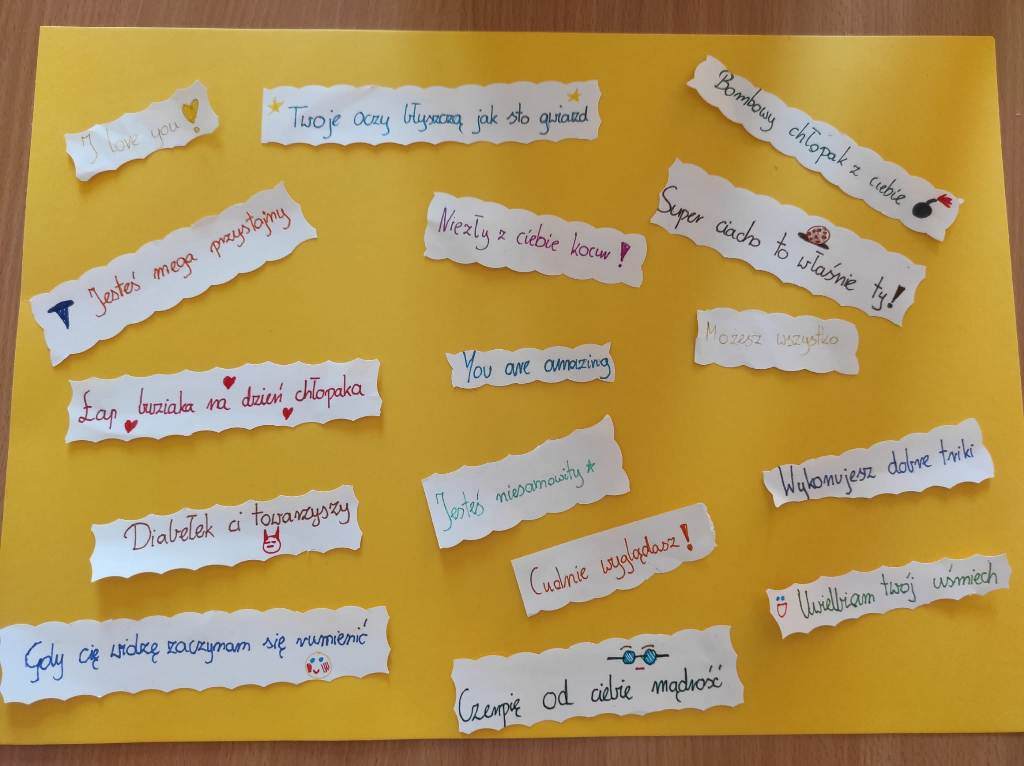 I love you
Twoje oczy błyszczą jak sto gwiazd
Bombowy chłopak z ciebie
Jesteś mega przystojny
Niezły z ciebie kocur!
Super ciacho to właśnie ty!
Możesz wszystko
You are amazing
Łap buziaka na dzień chłopaka
Wykonujesz dobre triki
Jesteś niesamowity
Diabełek ci towarzyszy
Cudnie wyglądasz!
Uwielbiam twój uśmiech
Gdy cię widzę zaczynam się rumienić
Czerpię od ciebie mądrość